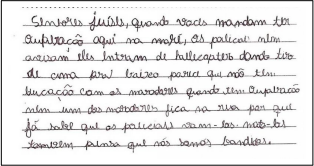 Senhores juists, quando voces mandam ter
oupiracão aqui na maré, os policai nem
avisam elles intram de hellecoptero dando tiro
de cima pra baixo parece que não têm
iducação com as moradores quando tem oupiracão
nem um dos moradores fica na rua por que
já sabe que os policiais vam-los mata-los
tambem pensa que nós somos bandios.